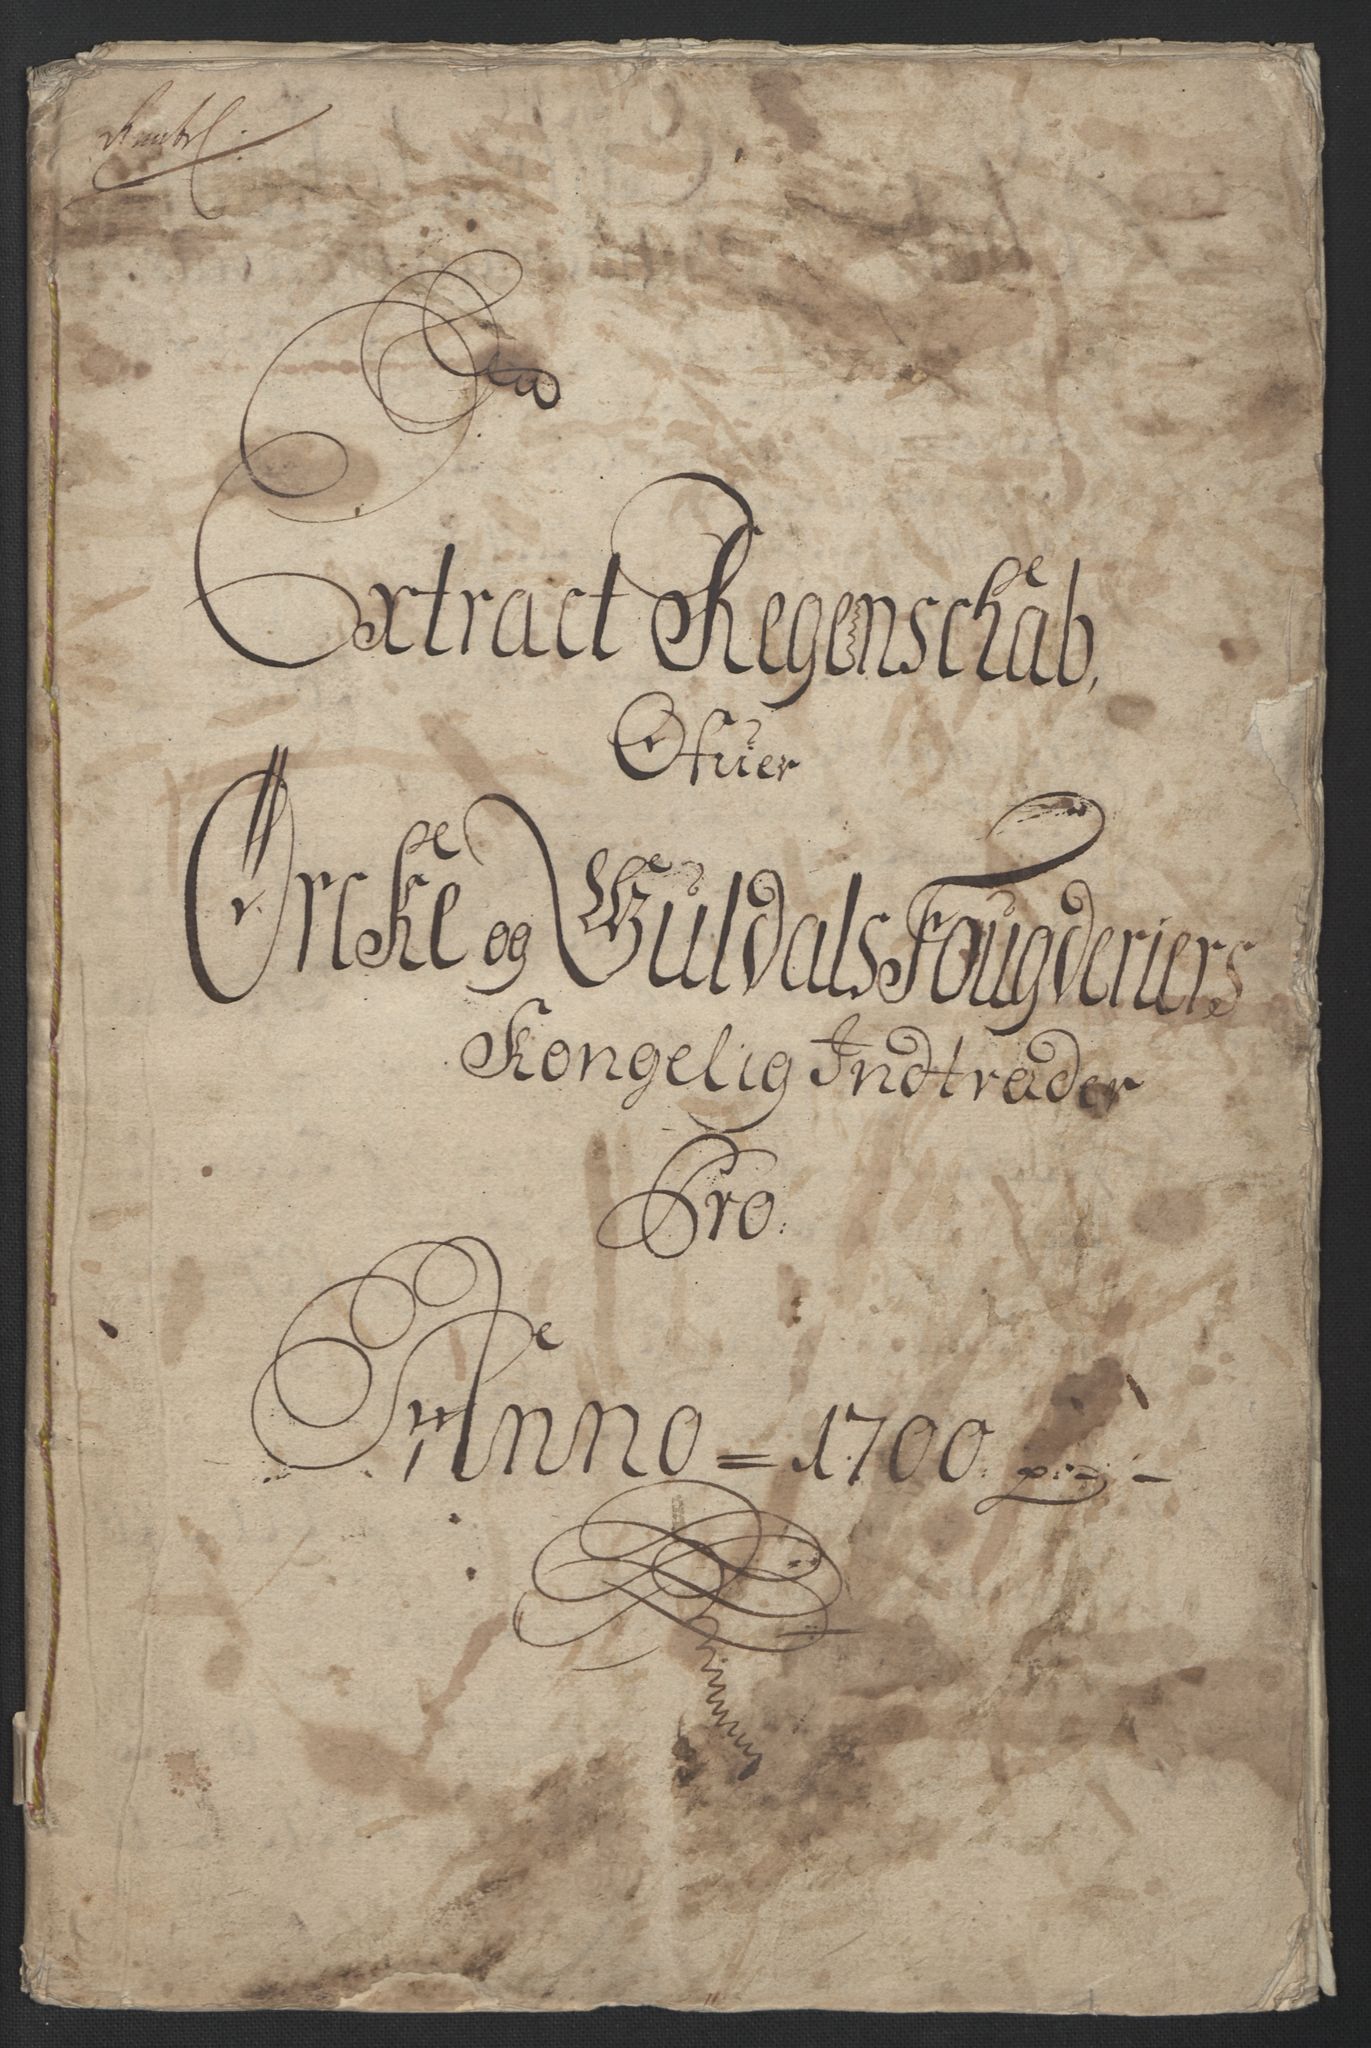 En
Extract Regenschab,
Ofuer
Ørckel og Guldals Fougderiers
Kongelig Indtrader
Pro.
Anno = 1700.